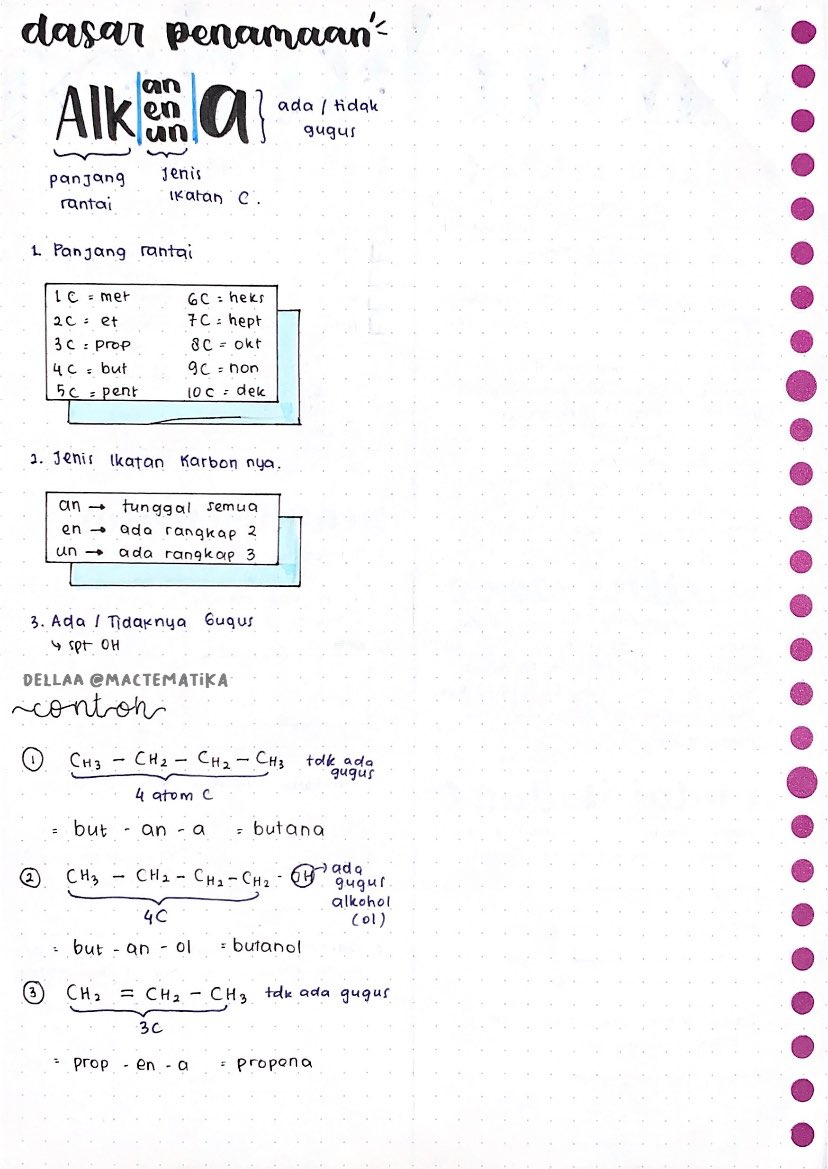 dasar penamaan
Alk an en un a } ada / tidak
gugus
panjang rantai
jenis ikatan C.
1. Panjang rantai
1C = met 6C = heks
2C = et 7C = hept
3C = prop 8C = okt
4C = but 9C = non
5C = pent 10C = dek
2. Jenis Ikatan Karbon nya.
an → tunggal semua
en → ada rangkap 2
un → ada rangkap 3
3. Ada / Tidaknya Gugus
↳ spt OH
DELLAA @MACTEMATiKA
contoh
① CH3 - CH2 - CH2 - CH3 tdk ada
gugus
4 atom C
= but - an - a = butana
② CH3 - CH2 - CH2 - CH2 - OH → ada
gugus
alkohol
(ol)
4C
= but - an - ol = butanol
③ CH2 = CH2 - CH3 tdk ada gugus
3C
= prop - en - a = propena